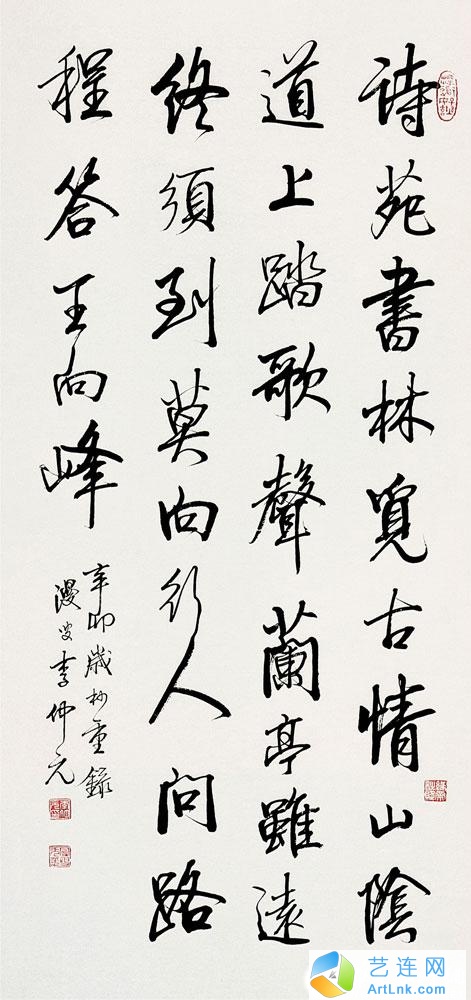 詩苑書林覓古情山陰
道上踏歌聲蘭亭雖遠
終須到莫向行人問路
程答王向峰
辛卯歲杪重錄
漫叟李仲元
艺连网
ArtLnk.com